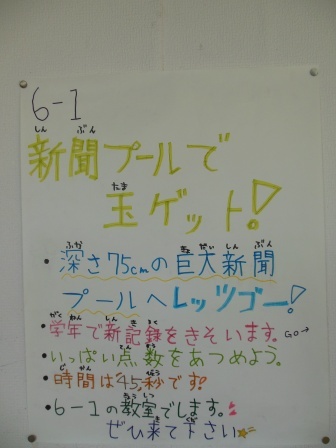 6-1
新聞プールで
玉ゲット!
・深さ75cmの巨大新聞
プールへレッツゴー!
・学年で新記録をきそいます。GO→
・いっぱい点数をあつめよう。
・時間は45秒です!
・6-1の教室でします。
ぜひ来て下さい